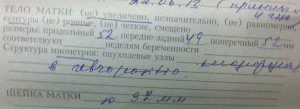 ТЕЛО МАТКИ: (не) увеличено, незначительно, (не) равномерно
контуры (не) ровные, (не) четкие, смещено
размеры: продольный 52, передне-задний 49, поперечный 52 мм
соответствует неделям беременности
Структура миометрия: опухолевые узлы
ШЕЙКА МАТКИ
37 мм